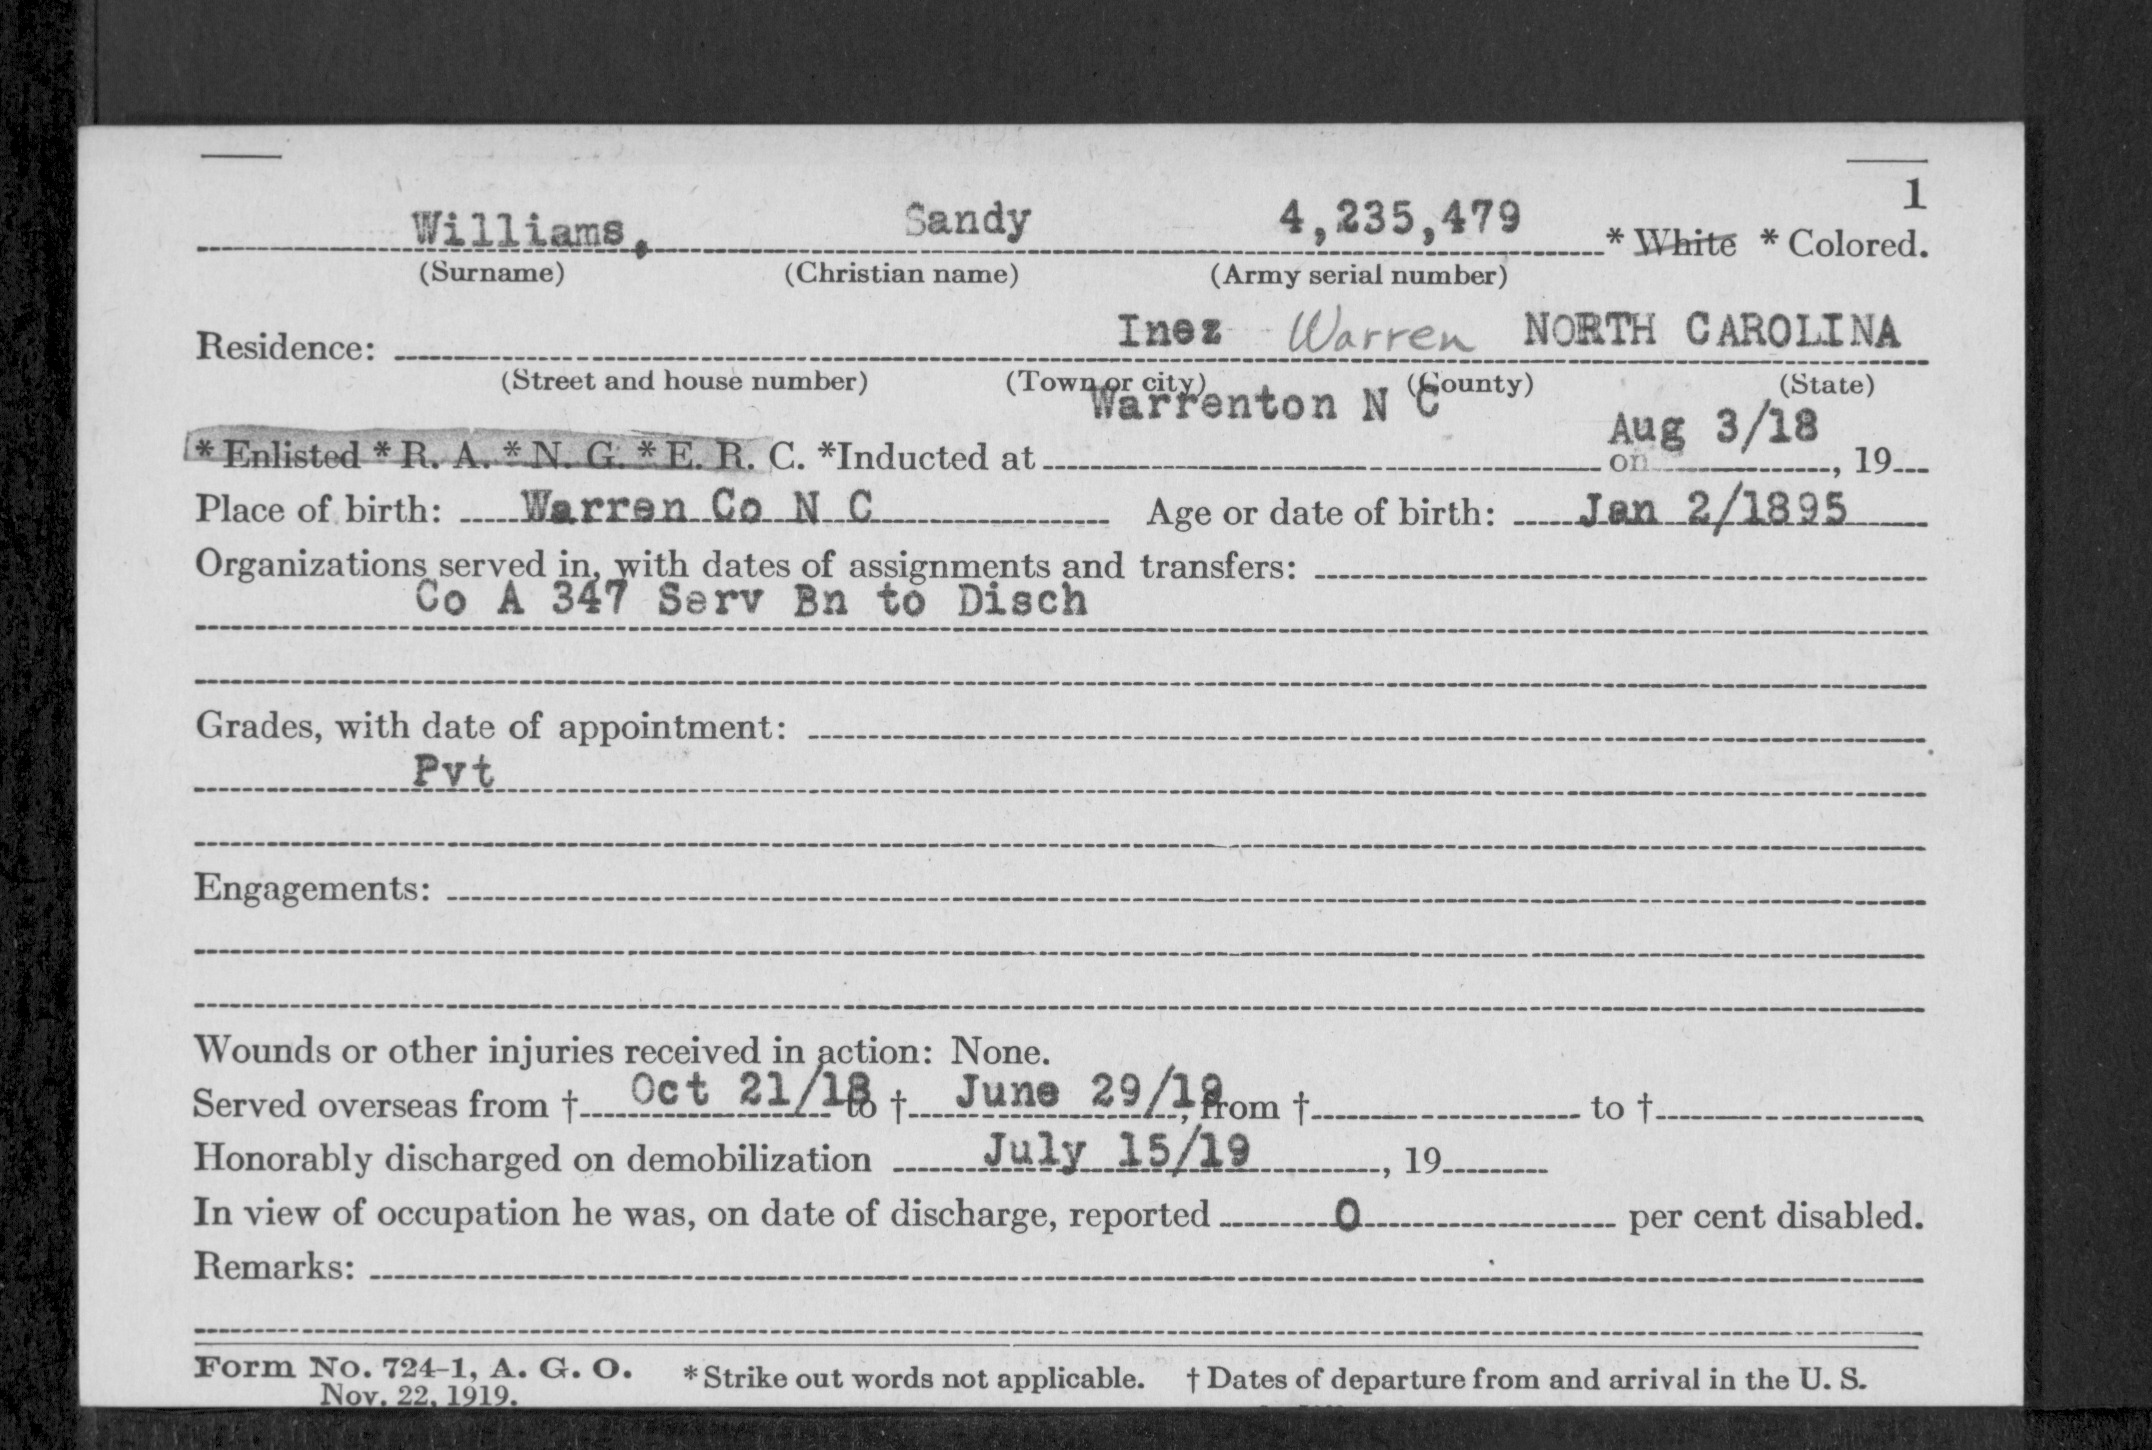 1
Williams, Sandy 4,235,479 * White * Colored.
(Surname) (Christian name) (Army serial number)
Residence: Inez Warren NORTH CAROLINA
(Street and house number) (Town or city) (County) (State)
Warrenton N C Aug 3/18
* Enlisted * R. A. * N. G. * E. R. C. *Inducted at on , 19
Place of birth: Warren Co N C Age or date of birth: Jan 2/1895
Organizations served in, with dates of assignments and transfers:
Co A 347 Serv Bn to Disch
Grades, with date of appointment:
Pvt
Engagements:
Wounds or other injuries received in action: None.
Served overseas from † Oct 21/18 to † June 29/19, from † to †
Honorably discharged on demobilization July 15/19, 19
In view of occupation he was, on date of discharge, reported 0 per cent disabled.
Remarks:
Form No. 724-1, A. G. O. * Strike out words not applicable. † Dates of departure from and arrival in the U. S.
Nov. 22, 1919.